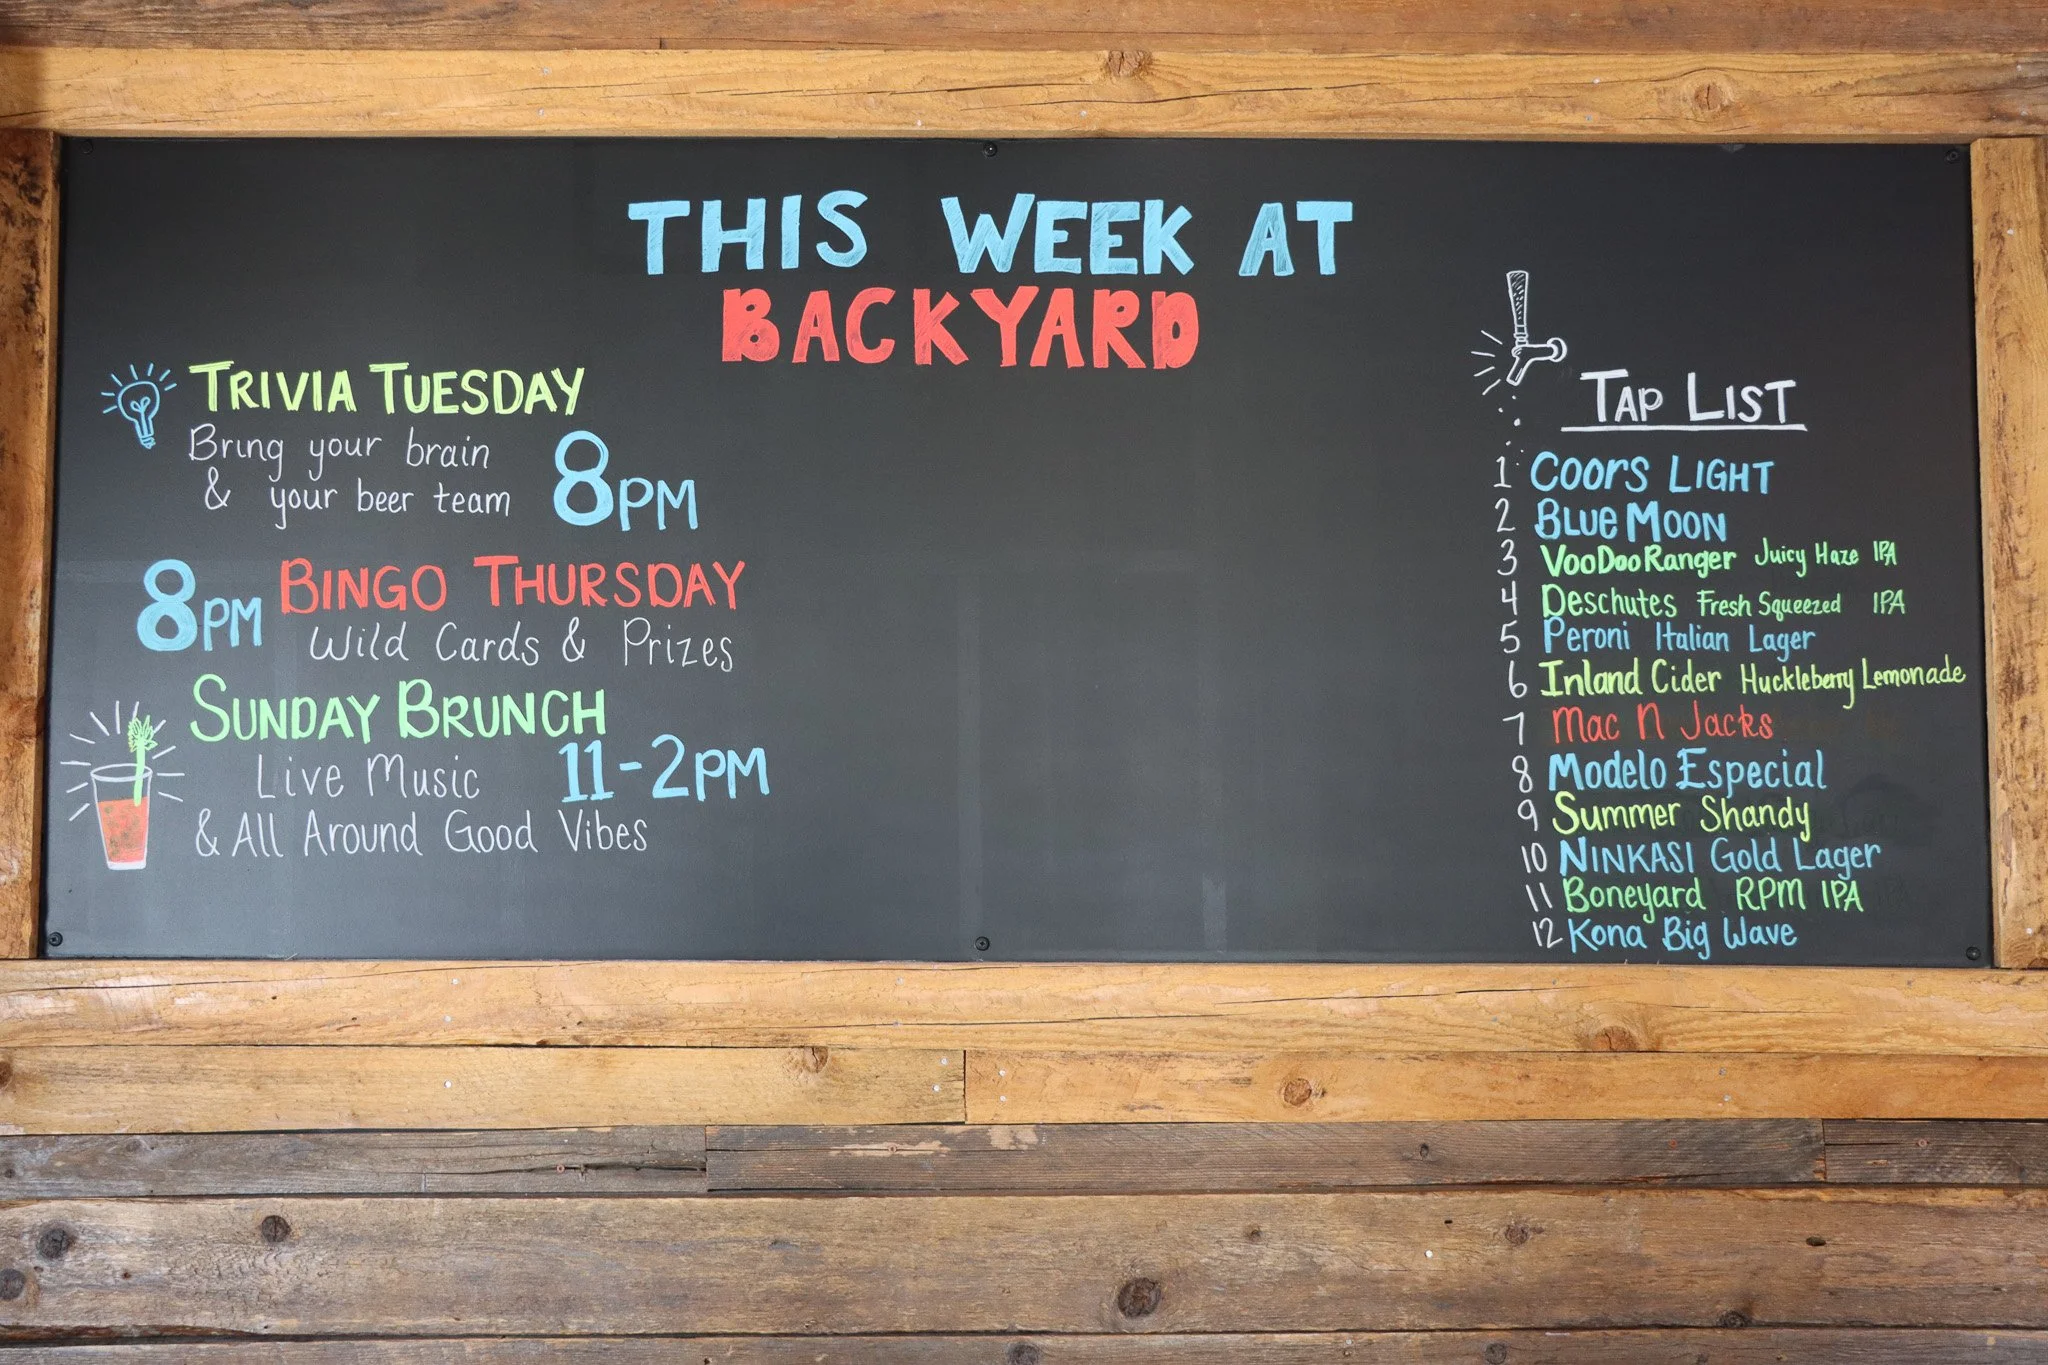 THIS WEEK AT
BACKYARD
TRIVIA TUESDAY
Bring your brain
& your beer team
8PM
8PM
BINGO THURSDAY
Wild Cards & Prizes
SUNDAY BRUNCH
Live Music
11-2PM
& All Around Good Vibes
TAP LIST
1 COORS LIGHT
2 BLUE MOON
3 VooDoo Ranger Juicy Haze IPA
4 Deschutes Fresh Squeezed IPA
5 Peroni Italian Lager
6 Inland Cider Huckleberry Lemonade
7 Mac N Jacks
8 Modelo Especial
9 Summer Shandy
10 NINKASI Gold Lager
11 Boneyard RPM IPA
12 Kona Big Wave